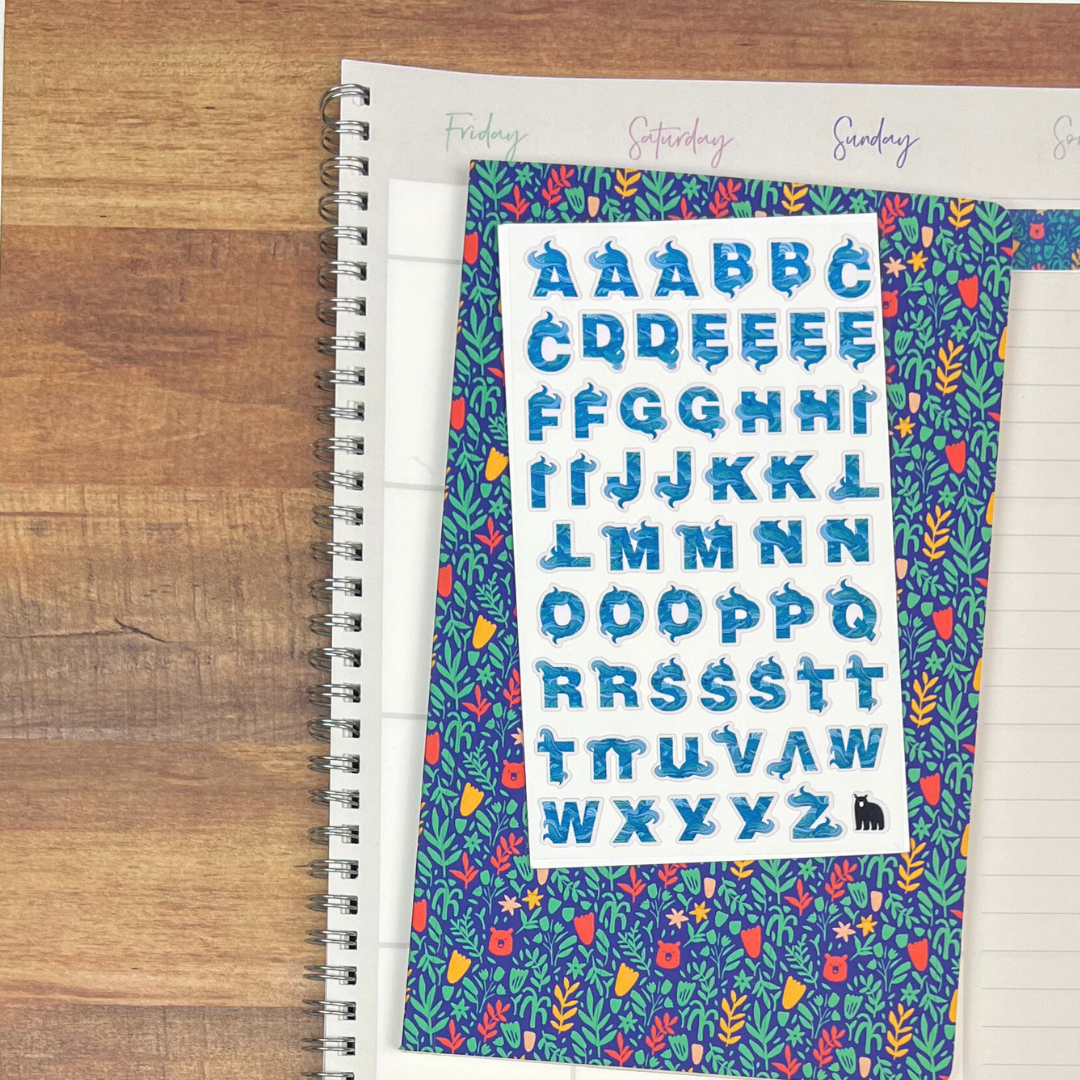 Friday Saturday Sunday
A A A B B C
C D D E E E E
F F G G H H I
I I J J K K L
L M M N N
O O O P P Q
R R S S S T T
T U U V V W
W X Y Y Z